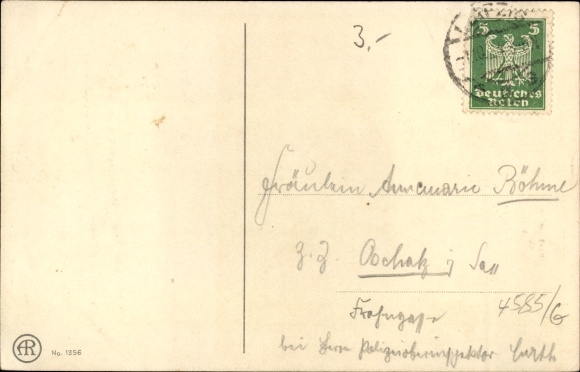 3.-
LEIPZIG
5 5
Deutsches
Reich
Fräulein Annemarie Böhme
z. Z. Oschatz i/ Sa
Frohngasse
4585/G
bei Herrn Polizeioberinspektor Curth
AR
No. 1356